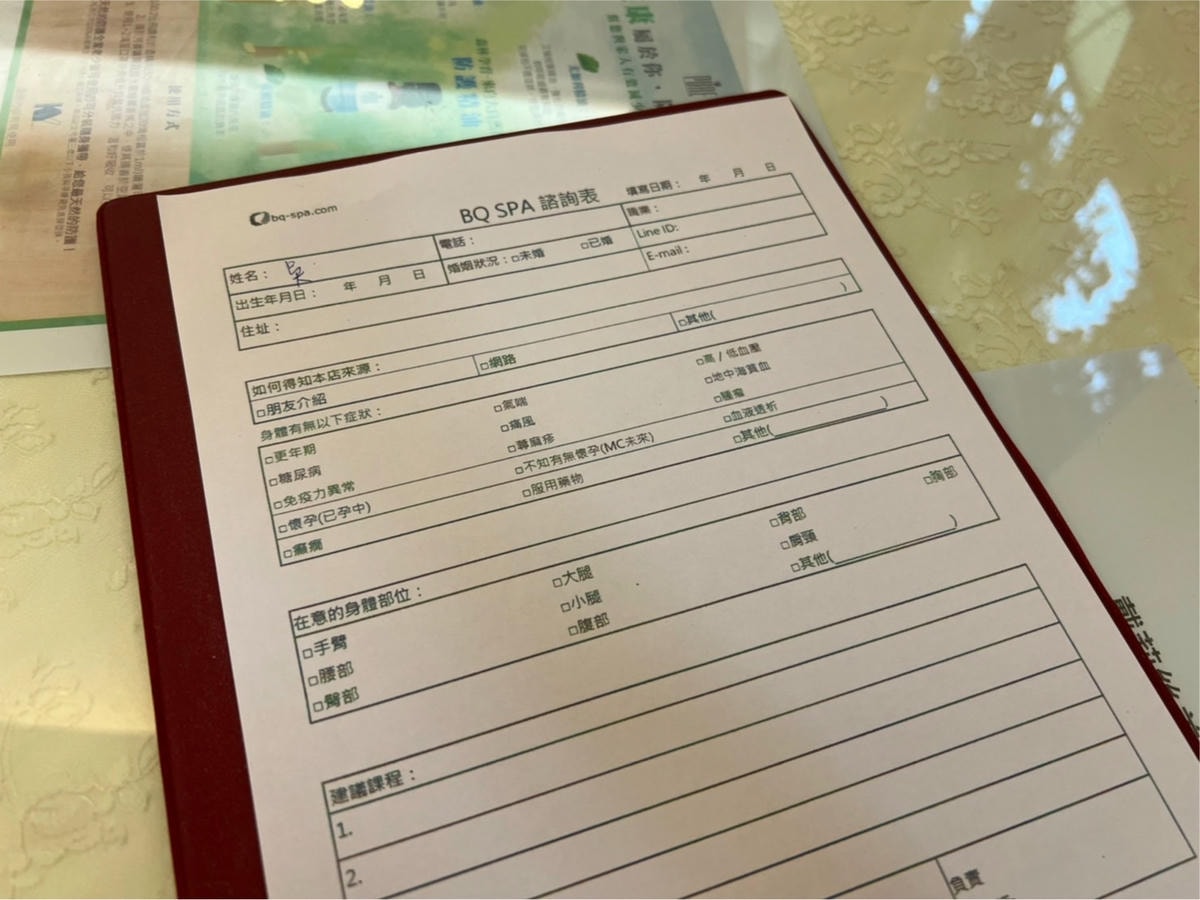 bq-spa.com
BQ SPA 諮詢表
填寫日期： 年 月 日
姓名： 吳
電話：
職業：
出生年月日： 年 月 日
婚姻狀況：□未婚 □已婚
Line ID:
住址：
E-mail：
如何得知本店來源：
□網路
□其他( )
□朋友介紹
身體有無以下症狀：
□更年期 □氣喘 □高 / 低血壓
□糖尿病 □痛風 □地中海貧血
□免疫力異常 □蕁麻疹 □腫瘤
□懷孕(已孕中) □不知有無懷孕(MC未來) □血液透析
□癲癇 □服用藥物 □其他( )
在意的身體部位：
□手臂 □大腿 □背部 □胸部
□腰部 □小腿 □肩頸
□臀部 □腹部 □其他( )
建議課程：
1.
2.
負責
康屬於你、
防護精油
使用方式